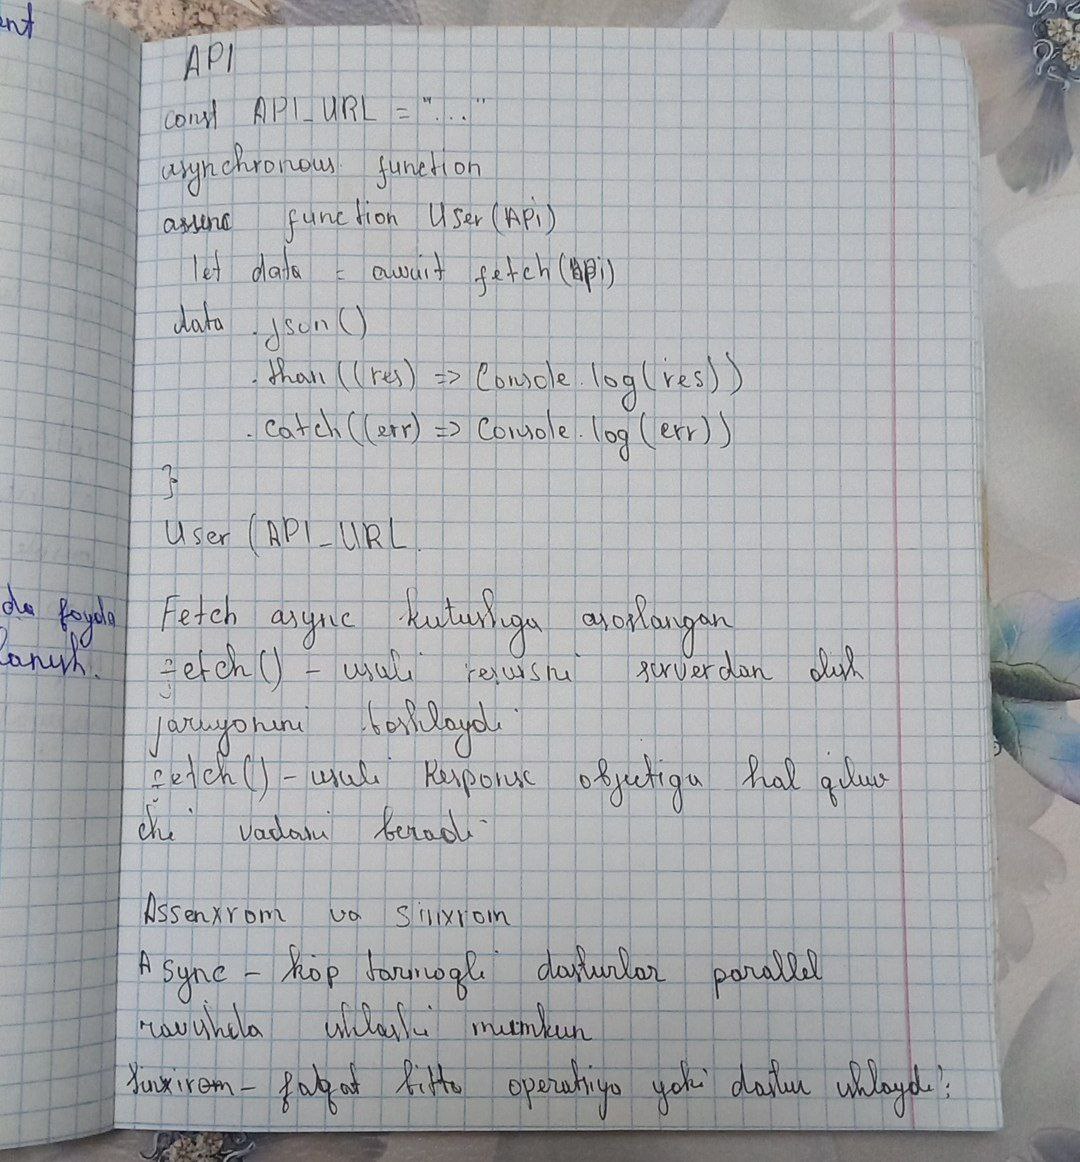 ent
da foyda
lanish.
API
const API_URL = "..."
asynchronous function
async function User(Api)
let data = await fetch(Api)
data .json()
.than((res) => Console.log(res))
.catch((err) => Console.log(err))
}
User (API_URL
Fetch async kutushga asoslangan
fetch() - usuli resursni serverdan olish
jarayonini boshlaydi
fetch() - usuli Response objectiga hal qiluv
chi vadani beradi
Assenxrom va sinxrom
Async - ko'p tarmoqli dasturlar parallel
ravishda ishlashi mumkin
Sinxirom - faqat bitta operatsiya yoki dastur ishlaydi;